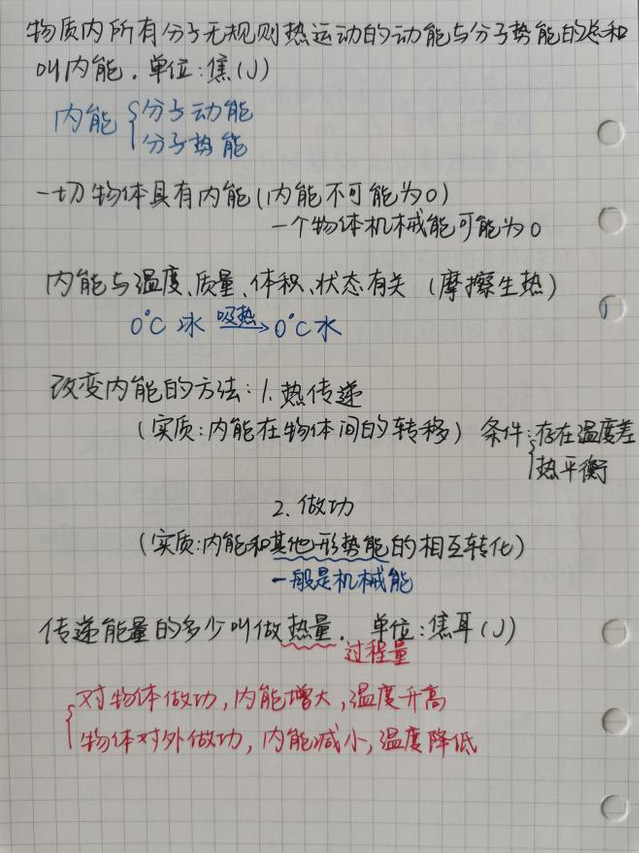 物质内所有分子无规则热运动的动能与分子势能的总和
叫内能．单位：焦(J)
内能{分子动能
分子势能
一切物体具有内能(内能不可能为0)
一个物体机械能可能为0
内能与温度、质量、体积、状态有关（摩擦生热）
0℃冰 吸热→ 0℃水
改变内能的方法：1．热传递
（实质：内能在物体间的转移） 条件：{存在温度差
热平衡
2．做功
（实质：内能和其他形势能的相互转化）
一般是机械能
传递能量的多少叫做热量．单位：焦耳(J)
过程量
{对物体做功，内能增大，温度升高
物体对外做功，内能减小，温度降低